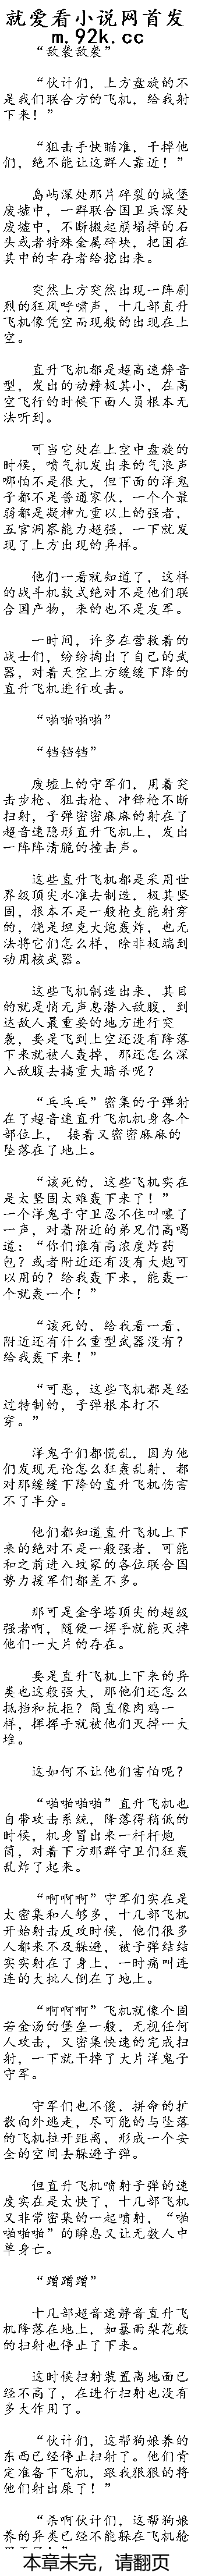 就爱看小说网首发
m.92k.cc
“敌袭敌袭”
“伙计们，上方盘旋的不
是我们联合方的飞机，给我射
下来！”
“狙击手快瞄准，干掉他
们，绝不能让这群人靠近！”
岛屿深处那片碎裂的城堡
废墟中，一群联合国卫兵深处
废墟中，不断搬起崩塌掉的石
头或者特殊金属碎块，把困在
其中的幸存者给挖出来。
突然上方突然出现一阵剧
烈的狂风呼啸声，十几部直升
飞机像凭空而现般的出现在上
空。
直升飞机都是超高速静音
型，发出的动静极其小，在高
空飞行的时候下面人员根本无
法听到。
可当它处在上空中盘旋的
时候，喷气机发出来的气浪声
哪怕不是很大，但下面的洋鬼
子都不是普通家伙，一个个最
弱都是凝神九重以上的强者，
五官洞察能力超强，一下就发
现了上方出现的异样。
他们一看就知道了，这样
的战斗机款式绝对不是他们联
合国产物，来的也不是友军。
一时间，许多在营救着的
战士们，纷纷掏出了自己的武
器，对着天空上方缓缓下降的
直升飞机进行攻击。
“啪啪啪啪”
“铛铛铛”
废墟上的守军们，用着突
击步枪、狙击枪、冲锋枪不断
扫射，子弹密密麻麻的射在了
超音速隐形直升飞机上，发出
一阵阵清脆的撞击声。
这些直升飞机都是采用世
界级顶尖水准去制造，极其坚
固，根本不是一般枪支能射穿
的，饶是坦克大炮轰炸，也无
法将它们怎么样，除非极端到
动用核武器。
这些飞机制造出来，其目
的就是悄无声息潜入敌腹，到
达敌人最重要的地方进行突
袭，要是飞到上空还没有降落
下来就被人轰掉，那还怎么深
入敌腹去搞重大暗杀呢？
“乒乓乓”密集的子弹射
在了超音速直升飞机机身各个
部位上， 接着又密密麻麻的
坠落在了地上。
“该死的，这些飞机实在
是太坚固太难轰下来了！”
一个洋鬼子守卫忍不住叫嚷了
一声，对着附近的弟兄们高喝
道：“你们谁有高浓度炸药
包？或者附近还有没有大炮可
以用的？给我轰下来，能轰一
个就轰一个！”
“该死的，给我看一看，
附近还有什么重型武器没有？
给我轰下来！”
“可恶，这些飞机都是经
过特制的，子弹根本打不
穿。”
洋鬼子们都慌乱，因为他
们发现无论怎么狂轰乱射，都
对那缓缓下降的直升飞机伤害
不了半分。
他们都知道直升飞机上下
来的绝对不是一般强者，可能
和之前进入坟冢的各位联合国
势力援军们都差不多。
那可是金字塔顶尖的超级
强者啊，随便一挥手就能灭掉
他们一大片的存在。
要是直升飞机上下来的异
类也这般强大，那他们还怎么
抵挡和抗拒？简直像肉鸡一
样，挥挥手就被他们灭掉一大
堆。
这如何不让他们害怕呢？
“啪啪啪啪”直升飞机也
自带攻击系统，降落得稍低的
时候，机身冒出来一杆杆炮
筒，对着下方那群守卫们狂轰
乱炸了起来。
“啊啊啊”守军们实在是
太密集和人够多，十几部飞机
开始射击反攻时候，他们很多
人都来不及躲避，被子弹结结
实实射在了身上，一时痛叫连
连的大批人倒在了地上。
“啊啊啊”飞机就像个固
若金汤的堡垒一般，无视任何
人攻击，又密集快速的完成扫
射，一下就干掉了大片洋鬼子
守军。
守军们也不傻，拼命的扩
散向外逃走，尽可能的与坠落
的飞机拉开距离，形成一个安
全的空间去躲避子弹。
但直升飞机喷射子弹的速
度实在是太快了，十几部飞机
又非常密集的一起喷射，“啪
啪啪啪”的瞬息又让无数人中
单身亡。
“蹭蹭蹭”
十几部超音速静音直升飞
机降落在地上，如暴雨梨花般
的扫射也停止了下来。
这时候扫射装置离地面已
经不高了，在进行扫射也没有
多大作用了。
“伙计们，这帮狗娘养的
东西已经停止扫射了。他们肯
定准备下飞机，跟我狠狠的将
他们射出屎了！”
“杀啊伙计们，这帮狗娘
养的异类已经不能躲在飞机舱
本章未完，请翻页